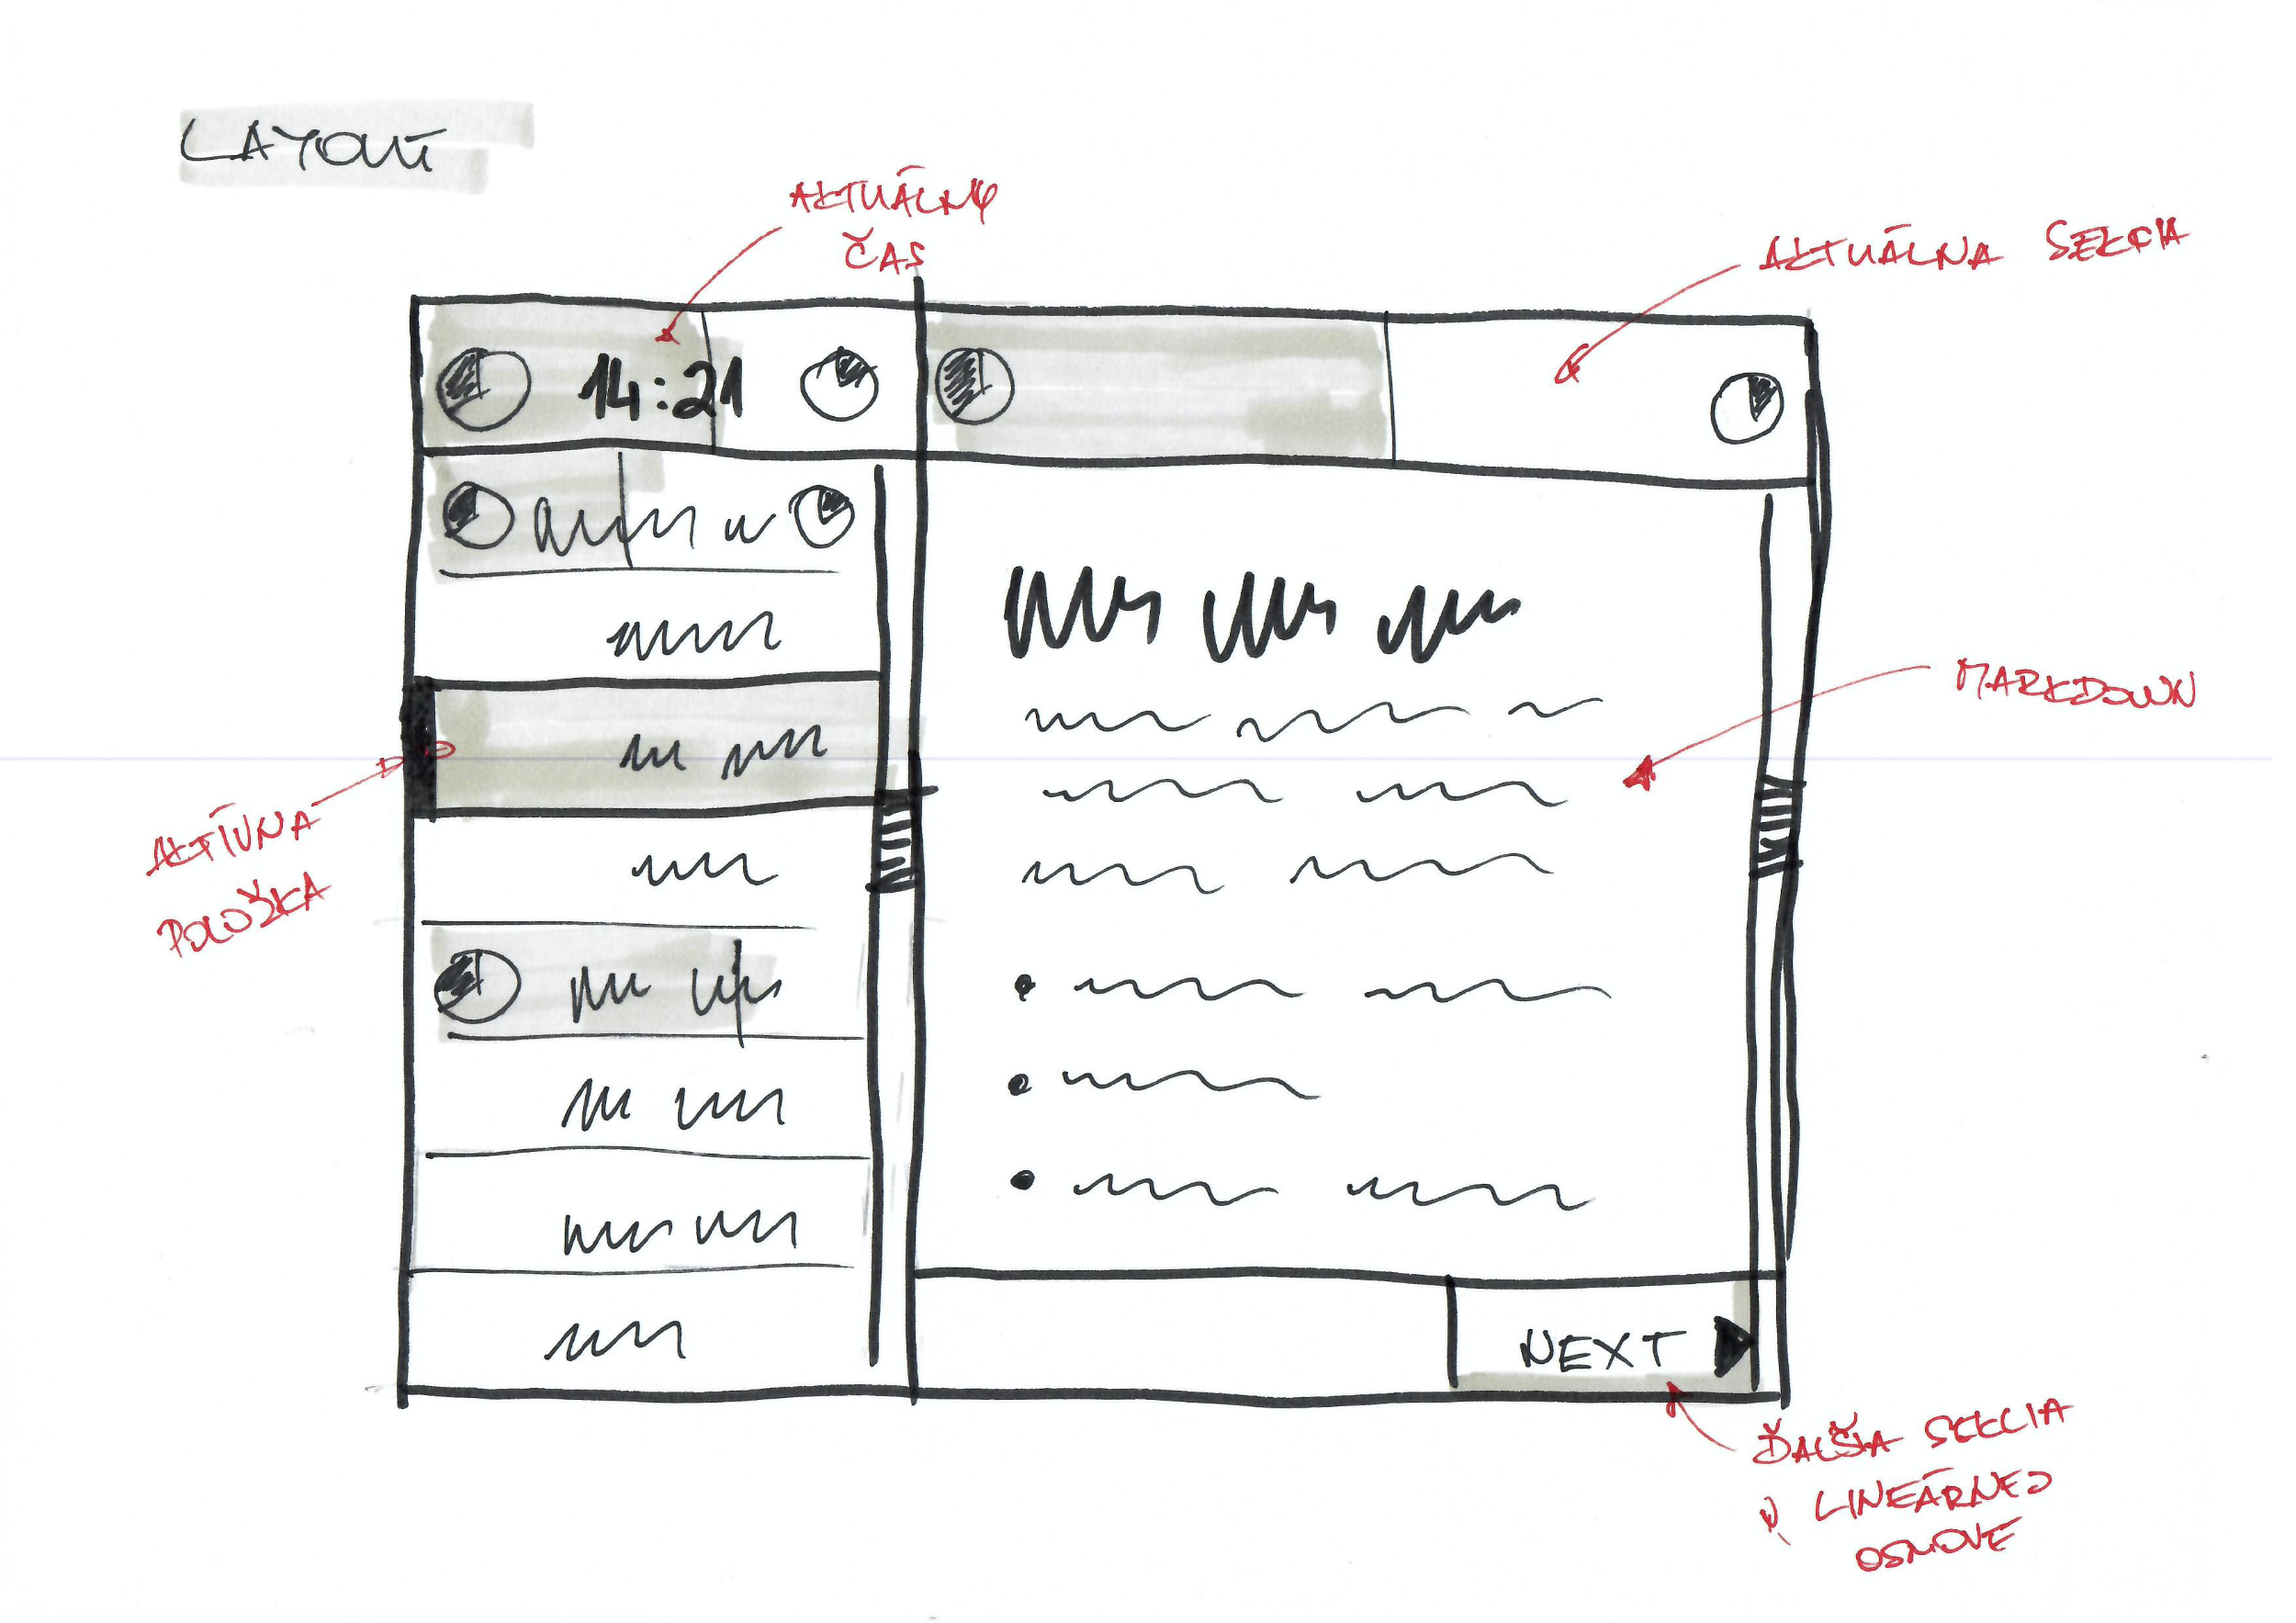 LAYOUT
AKTUÁLNY
ČAS
AKTUÁLNA SEKCIA
14:21
MARKDOWN
AKTÍVNA
POLOŽKA
NEXT
ĎALŠIA SEKCIA
V LINEÁRNEJ
OSNOVE